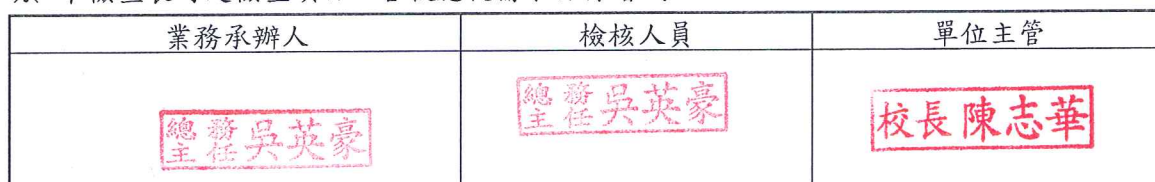 業務承辦人 檢核人員 單位主管
總務主任 吳英豪 總務主任 吳英豪 校長 陳志華